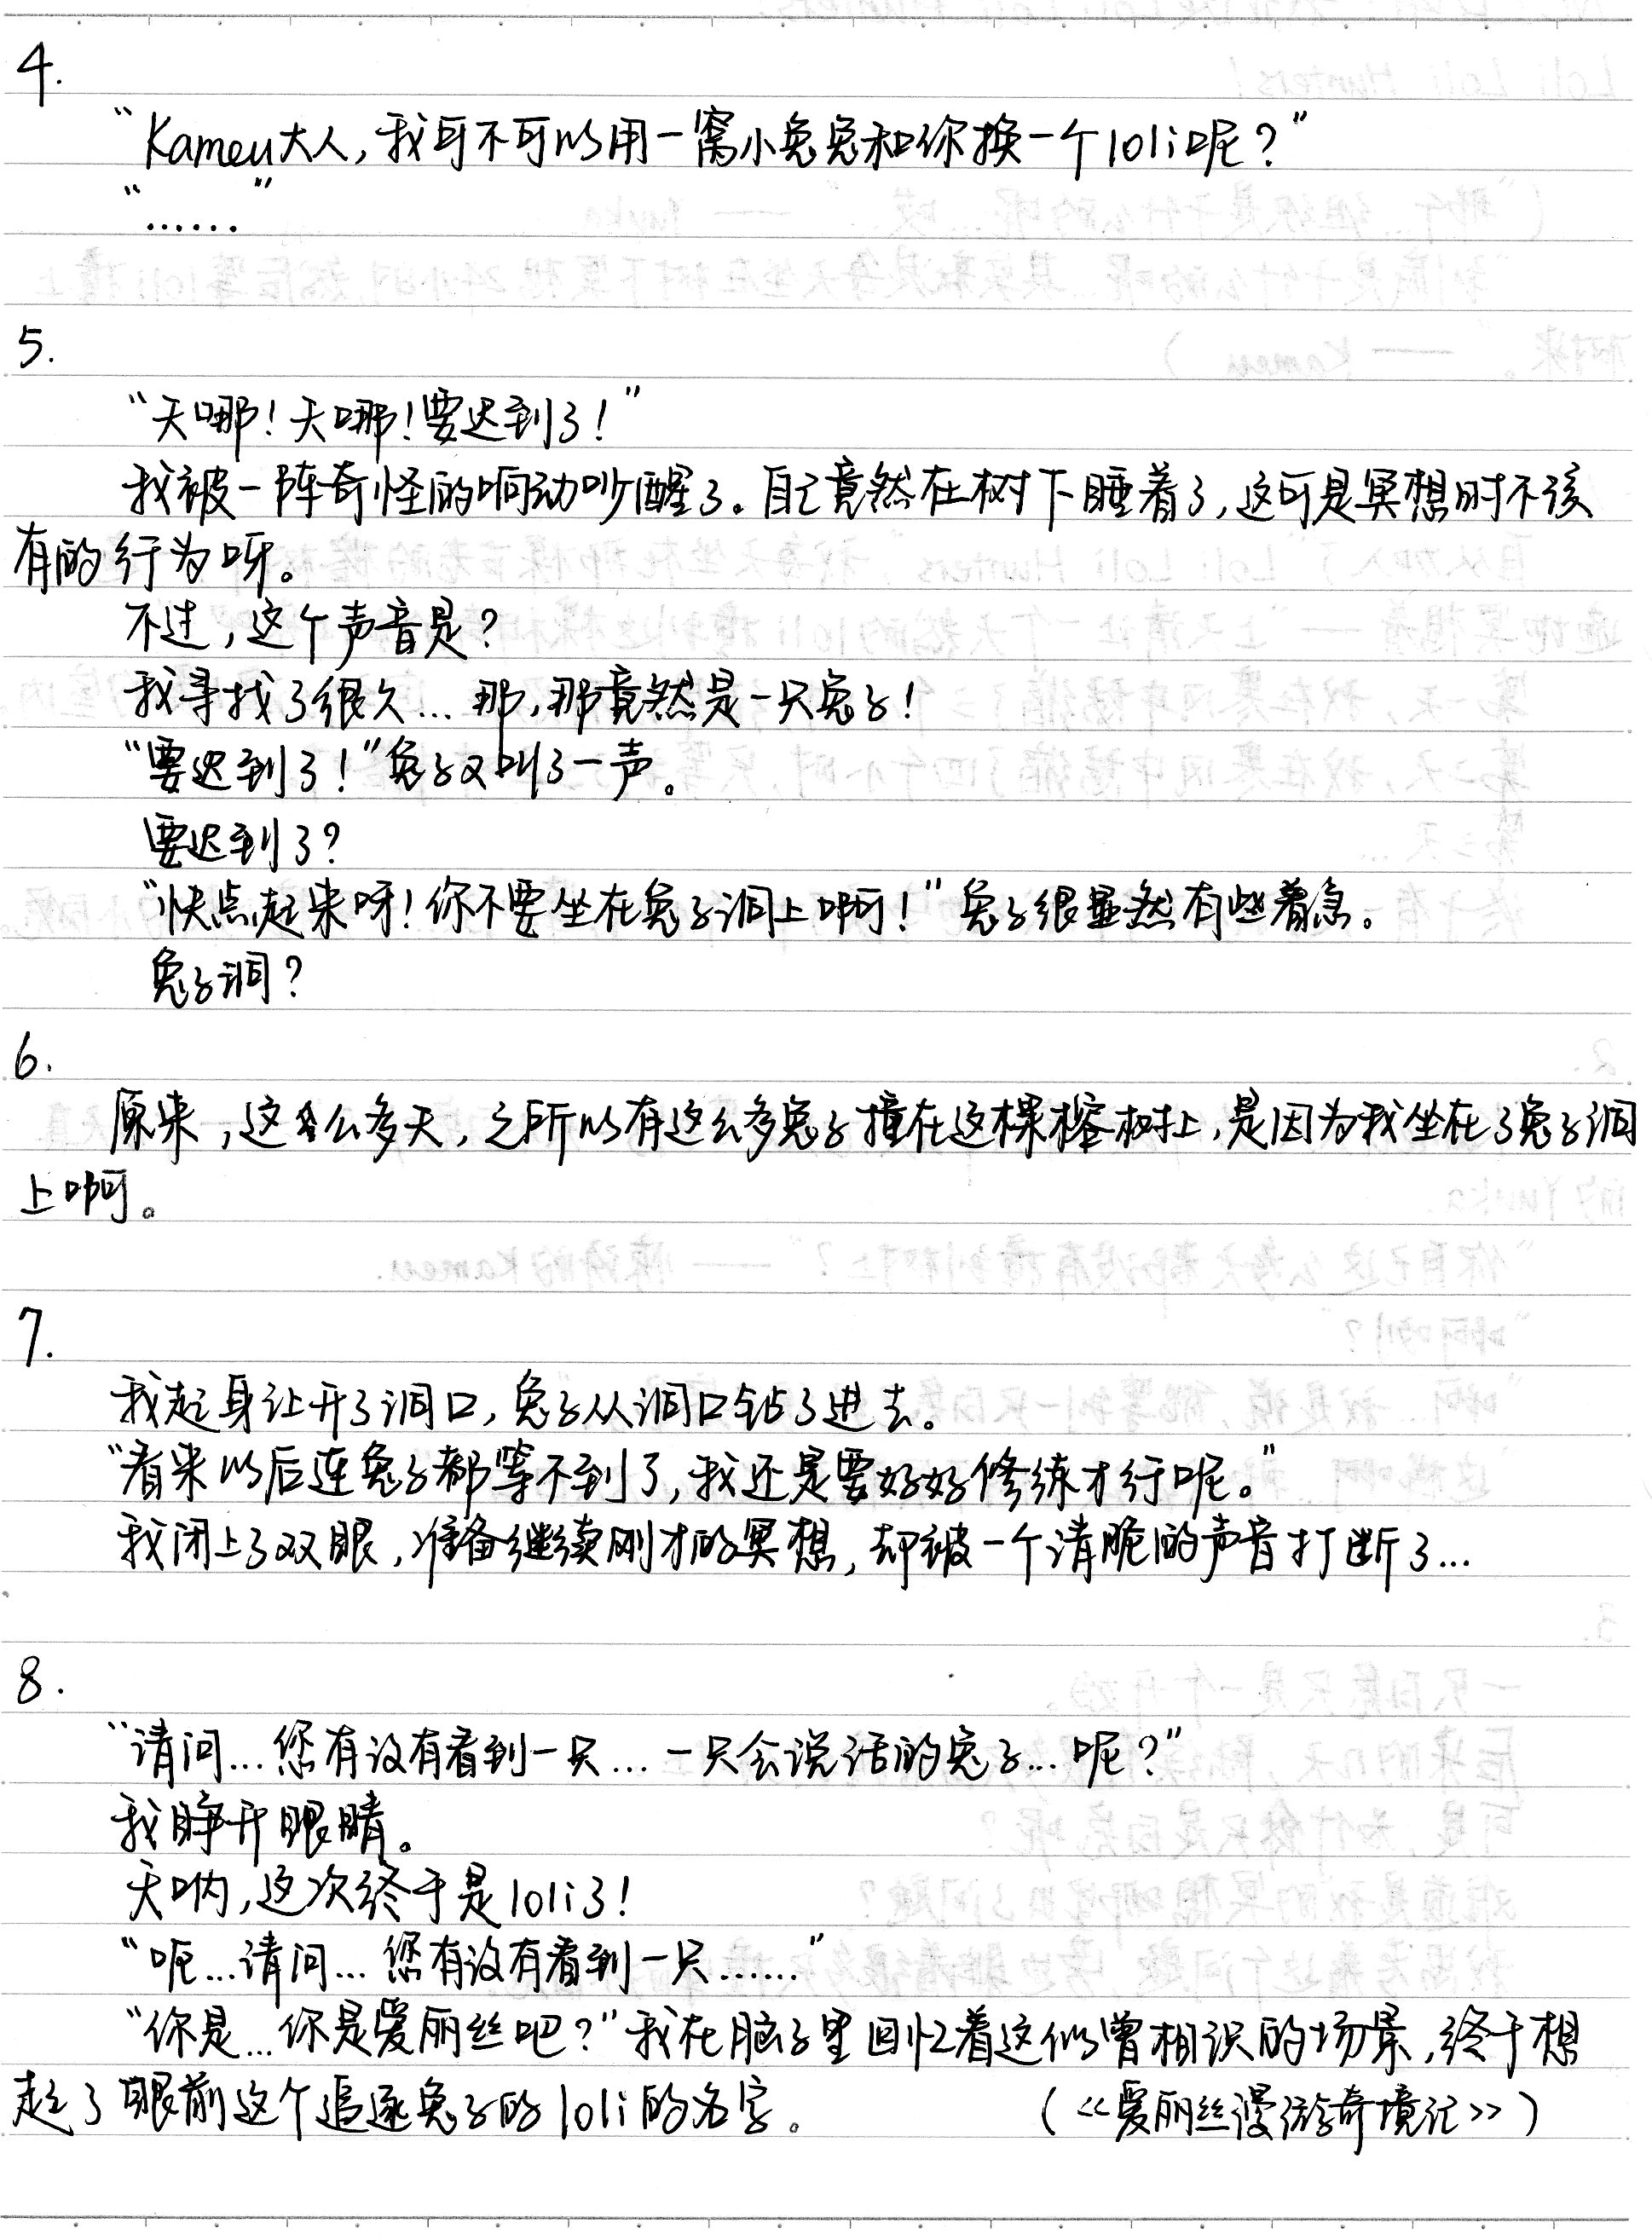 4.
“Kameu大人,我可不可以用一窝小兔兔和你换一个loli呢?”
“......”
5.
“天哪!天哪!要迟到了!”
我被一阵奇怪的响动吵醒了。自己竟然在树下睡着了,这可是冥想时不该
有的行为呀。
不过,这个声音是?
我寻找了很久...那,那竟然是一只兔子!
“要迟到了!”兔子又叫了一声。
要迟到了?
“快点起来呀!你不要坐在兔子洞上啊!”兔子很显然有些着急。
兔子洞?
6.
原来,这么多天,之所以有这么多兔子撞在这棵榕树上,是因为我坐在了兔子洞
上啊。
7.
我起身让开了洞口,兔子从洞口钻了进去。
“看来以后连兔子都等不到了,我还是要好好修练才行呢。”
我闭上了双眼,准备继续刚才的冥想,却被一个清脆的声音打断了...
8.
“请问...您有没有看到一只...一只会说话的兔子...呢?”
我睁开眼睛。
天呐,这次终于是loli了!
“呃...请问...您有没有看到一只......”
“你是...你是爱丽丝吧?”我在脑子里回忆着这似曾相识的场景,终于想
起了眼前这个追逐兔子的loli的名字。 (<<爱丽丝漫游奇境记>>)